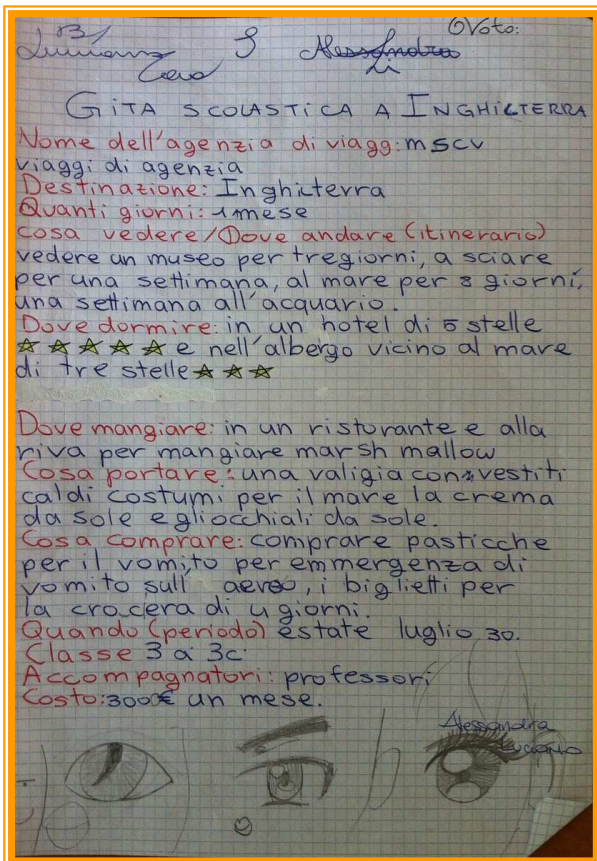 Voto:
Alessandra
Li
GITA SCOLASTICA A INGHILTERRA
Nome dell'agenzia di viagg: mscv
viaggi di agenzia
Destinazione: Inghilterra
Quanti giorni: 1 mese
cosa vedere/Dove andare (itinerario)
vedere un museo per tregiorni, a sciare
per una settimana, al mare per 8 giorni,
una settimana all'acquario.
Dove dormire: in un hotel di 5 stelle
e nell'albergo vicino al mare
di tre stelle
Dove mangiare: in un risturante e alla
riva per mangiare marsh mallow
Cosa portare: una valigia con vestiti
caldi costumi per il mare la crema
da sole e gliocchiali da sole.
Cosa comprare: comprare pasticche
per il vomito per emmergenza di
vomito sull' aereo, i biglietti per
la crocera di 4 giorni.
Quando (periodo) estate luglio 30.
Classe 3 a 3c
Accompagnatori: professori
Costo: 3000€ un mese.
Alessandra